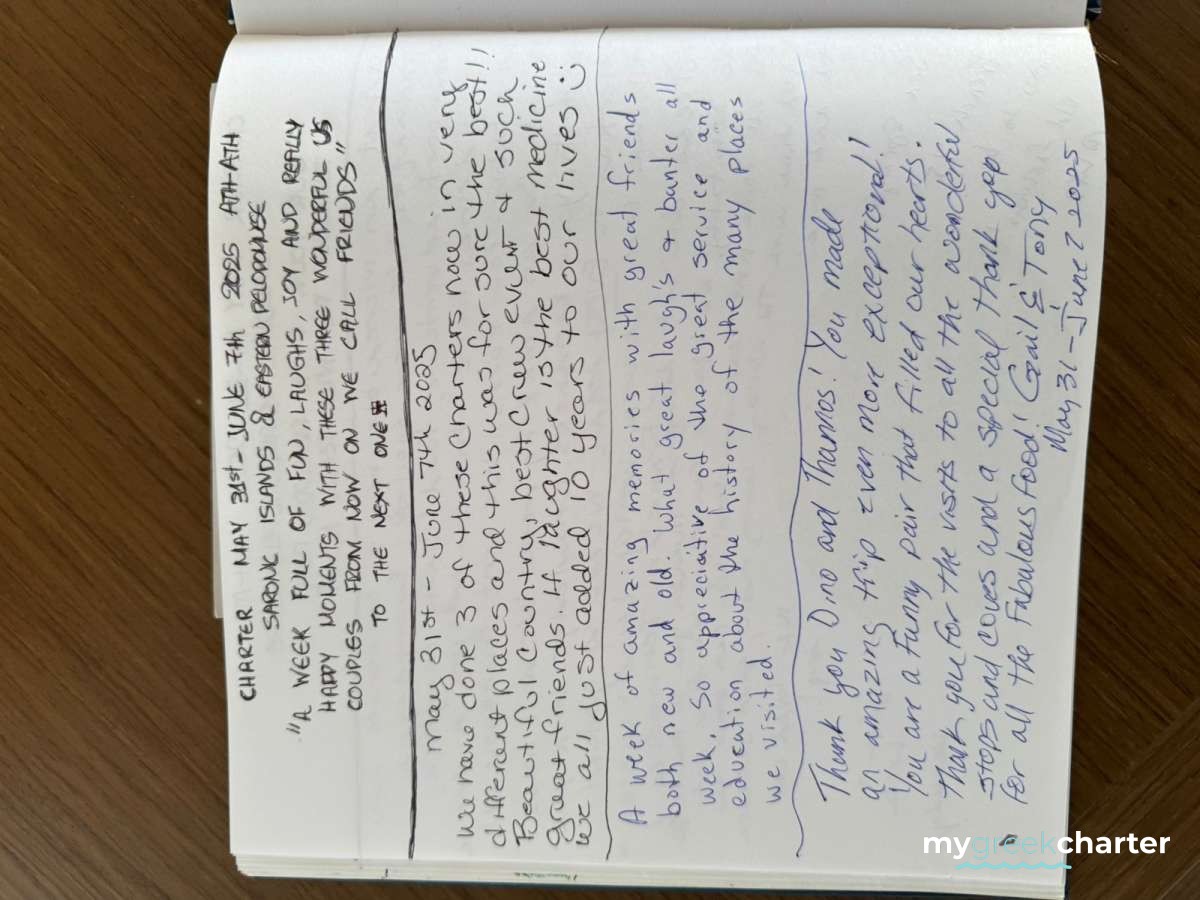 CHARTER MAY 31st - JUNE 7th 2025 ATH-ATH
SARONIC ISLANDS & EASTERN PELOPONNSE
"A WEEK FULL OF FUN, LAUGHS, JOY AND REALLY
HAPPY MOMENTS WITH THESE THREE WONDERFUL US
COUPLES FROM NOW ON WE CALL FRIENDS"
TO THE NEXT ONE
May 31st - June 7th 2025
We have done 3 of these Charters now in very
different places and this was for sure the best!!
Beautiful Country, best Crew ever + such
great friends. If laughter is the best medicine
we all just added 10 years to our lives
A week of amazing memories with great friends
both new and old. What great laugh's + banter all
week. So appreciative of the great service and
education about the history of the many places
we visited.
Thank you Dino and Thannos! You made
an amazing trip even more exceptional!
You are a funny pair that filled our hearts.
Thank you for the visits to all the wonderful
stops and coves and a special thank you
for all the fabulous food! Gail & Tony
May 31 - June 7 2025
mygreekcharter